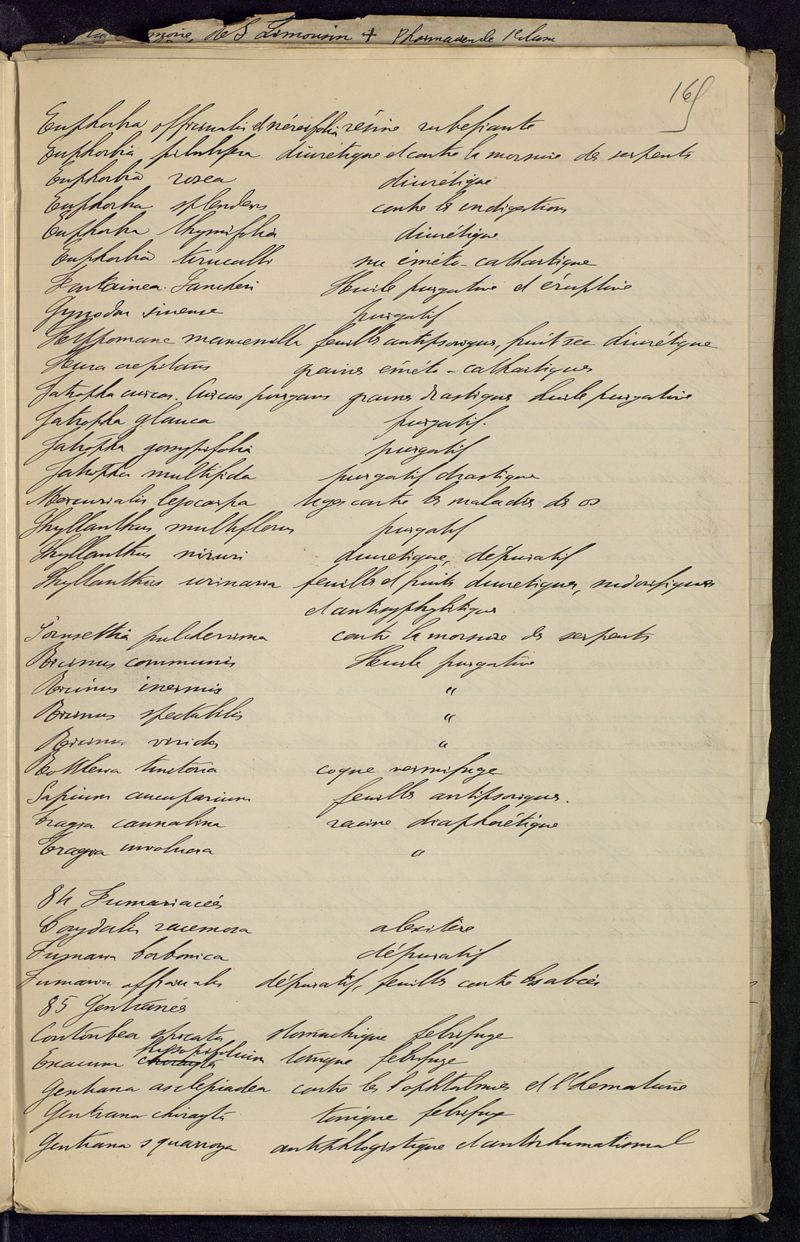 de S Limousin + Pharmacien de 1ère classe
165
Euphorbia officinalis et nereifolia résine rubefiante
Euphorbia pilulifera diurétique et contre la morsure des serpents
Euphorbia rosea diurétique
Euphorbia splendens contre les indigestions
Euphorbia thymifolia diurétique
Euphorbia tirucalli suc éméto-cathartique
Fontainea Pancheri Huile purgative et éruptive
sinense purgatif
Hippomane mancenilla feuilles antipsoriques, fruit sec diurétique
Hura crepitans graines éméto-cathartiques
Jatropha curcas. Curcas purgans graines drastiques huile purgative
Jatropha glauca purgatif.
Jatropha gossypifolia purgatif
Jatropha multifida purgatif drastique
Mercurialis leiocarpa tiges contre les maladies des os
Phyllanthus multiflorus purgatif
Phyllanthus niruri diuretique, dépuratif
Phyllanthus urinaria feuilles et fruits diuretiques, sudorifiques
et antisyphylitiques
Poinsettia pulcherrima contre la morsure des serpents
Ricinus communis Huile purgative
Ricinus inermis "
Ricinus spectabilis "
Ricinus viridis "
Rottlera tinctoria coque vermifuge
Sapium aucuparium feuilles antipsoriques.
Tragia cannabina racine diaphorétique
Tragia involucra "
84 Fumariacées
Corydalis racemosa alexitère
Fumaria borbonica dépuratif
Fumaria officinalis dépuratif, feuilles contre les abcès
85 Gentianés
Coutoubea spicata stomachique febrifuge
Exacum hyssopifolium tonique febrifuge
Gentiana asclepiadea contre les l'ophtalmies et l'hematurie
Gentiana chirayta tonique febrifuge
Gentiana squarrosa antiphlogistique et antirhumatismal